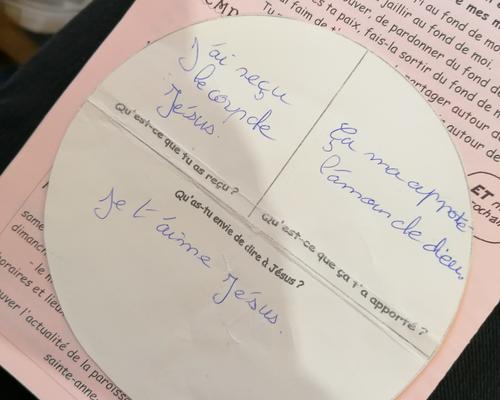 J'ai reçu
le corps de
Jésus.
Qu'est-ce que tu as reçu ?
Ça m'a apporté
l'amour de dieu.
Qu'est-ce que ça t'a apporté ?
Qu'as-tu envie de dire à Jésus ?
Je t'aime Jésus.
jaillir au fond de mo
ta paix, fais-la sortir du fond de
de pardonner du fond de m
partager autour
autour de
ET
same
dimanc
- le
oraires et lieu
uver l'actualité de la paroiss
sainte-anne.